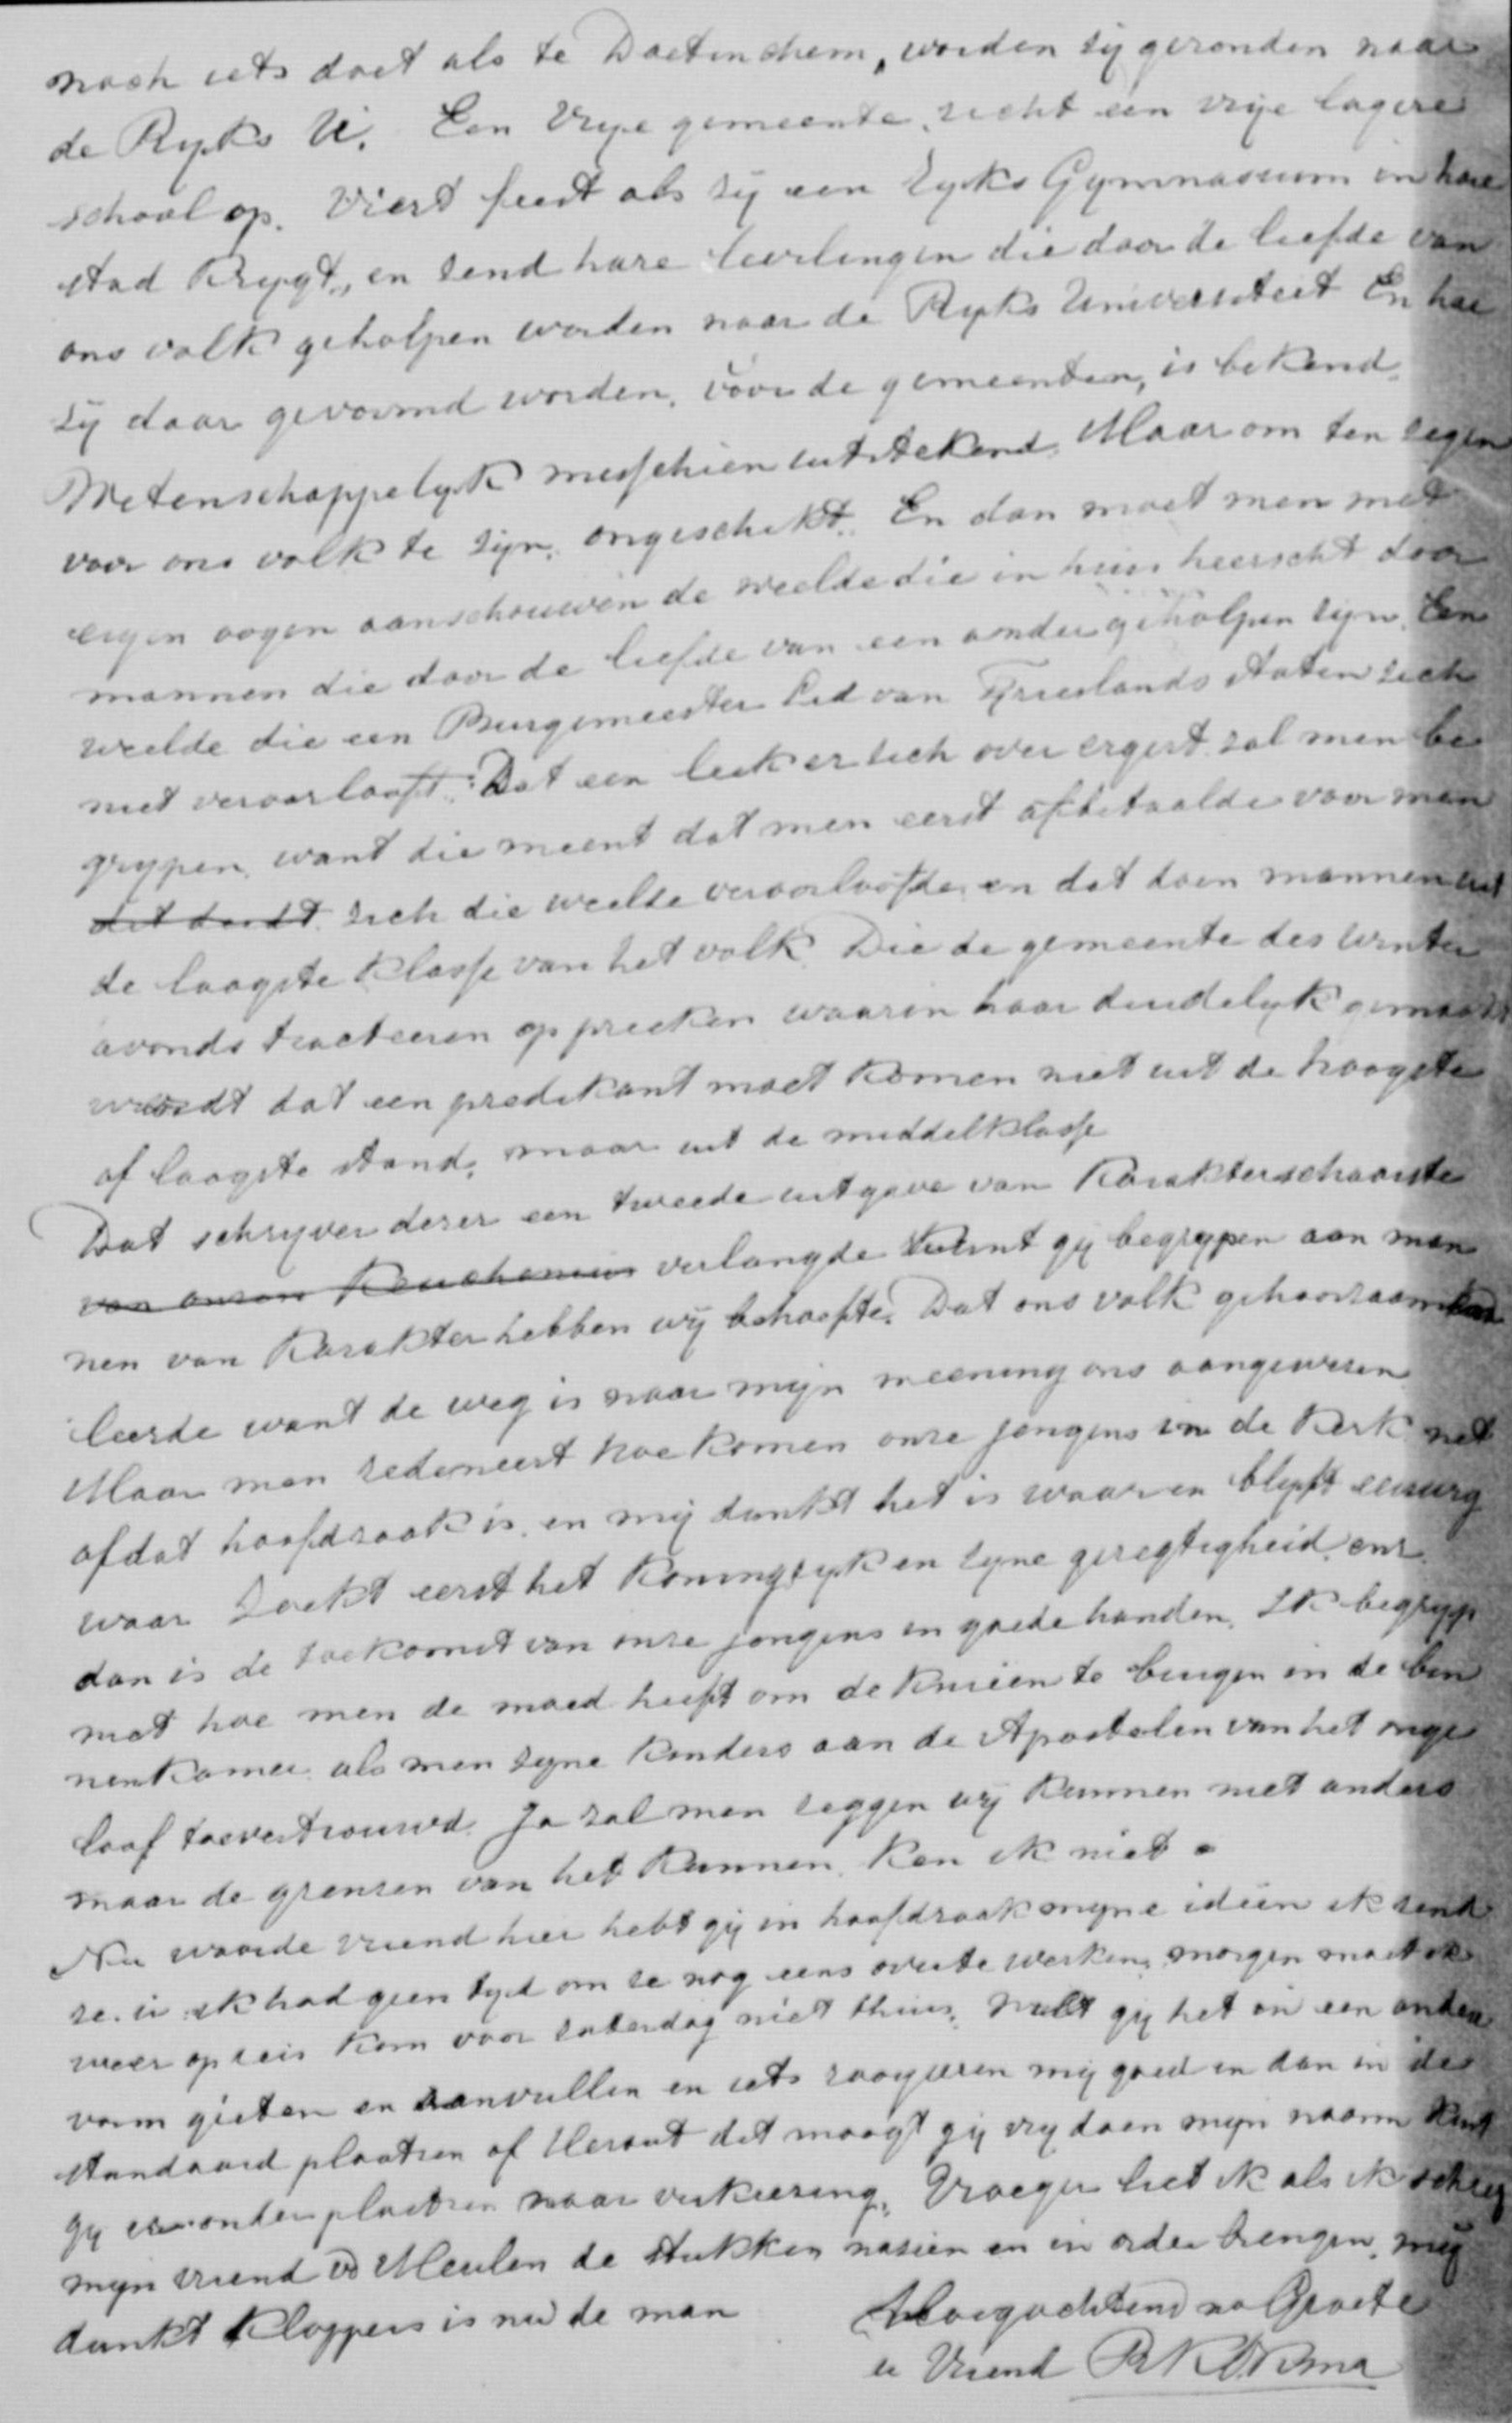 noch iets doet als te Doetinchem, worden zij gezonden naar
de Ryks U. Een Vrye gemeente, richt een vrije lagere
school op. Viert feest als zij een Ryks Gymnasium in hare
stad krygt, en zend hare leerlingen die door de liefde van
ons volk geholpen worden naar de Ryks Universiteit En hoe
zij daar gevormd worden, vóór de gemeenten, is bekend.
Wetenschappelyk misschien uitstekend. Maar om ten zegen
voor ons volk te zijn, ongeschikt. En dan moet men met
eigen oogen aanschouwen de weelde die in huis heerscht door
mannen die door de liefde van een ander geholpen zijn. Een
weelde die een Burgemeester Lid van Frieslands staten zich
niet veroorlooft. Dat een leek er zich over ergert zal men be
grypen, want die meent dat men eerst afbetaalde voor men
zich die weelde veroorloofde, en dat doen mannen uit
de laagste klasse van het volk. Die de gemeente des winter
avonds tracteeren op preeken waarin haar duidelyk gemaakt
wordt dat een predikant moet komen niet uit de hoogste
of laagste stand, maar uit de middelklasse
Dat schryver dezer een tweede uitgave van Karakterschaarste
van onzen Keuchenius verlangde kunt gij begrypen aan man
nen van Karakter hebben wij behoefte. Dat ons volk gehoorzaamheid
leerde want de weg is naar mijn meening ons aangewezen
Maar men redeneert hoe komen onze jongens in de Kerk net
of dat hoofdzaak is, en mij dunkt het is waar en blyft eeuwig
waar Zoekt eerst het Koningryk en zyne geregtigheid, enz.
dan is de toekomst van onze jongens in goede handen. Ik begryp
niet hoe men de moed heeft om de knieën te buigen in de bin
nenkamer als men zyne kinders aan de Apostelen van het onge
loof toevertrouwd. Ja zal men zeggen wij kunnen niet anders
maar de grenzen van het kunnen, ken ik niet.
Nu waarde vriend hier hebt gij in hoofdzaak myne idëen ik zend
ze u ik had geen tyd om ze nog eens over te werken, morgen moet ik
weer op reis kom voor zaterdag niet thuis. Wilt gij het in een andere
vorm gieten en aanvullen en iets mij goed en dan in de
standaard plaatsen of Heraut dit moogt gij vrij doen mijn naam kunt
gij er onder plaatsen naar verkiezing. Vroeger liet ik als ik schreef
mijn vriend vd Meulen de stukken nazien en in orde brengen, mij
dunkt Kloppers is nu de man
Hoogachtend na Groete
u Vriend